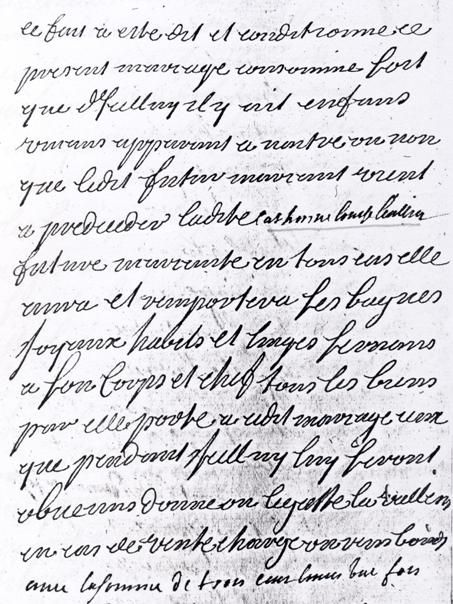 ce fait a esté dit et conditionné ce
present mariage consommé soit
que d'Jcelluy il y ait enfans
vivans apparant a naistre ou non
que ledit futur mariant vient
a predeceder ladite
future mariante en tous cas elle
aura et remportera ses bagues
Joyaux habits et linges servans
a son Corps et chef tous les biens
par elle porté audit mariage ceux
que pendant Jcelluy luy seront
obvenus donné ou legatté la
en cas de vente charge ou
avec la somme de trois cens une fois